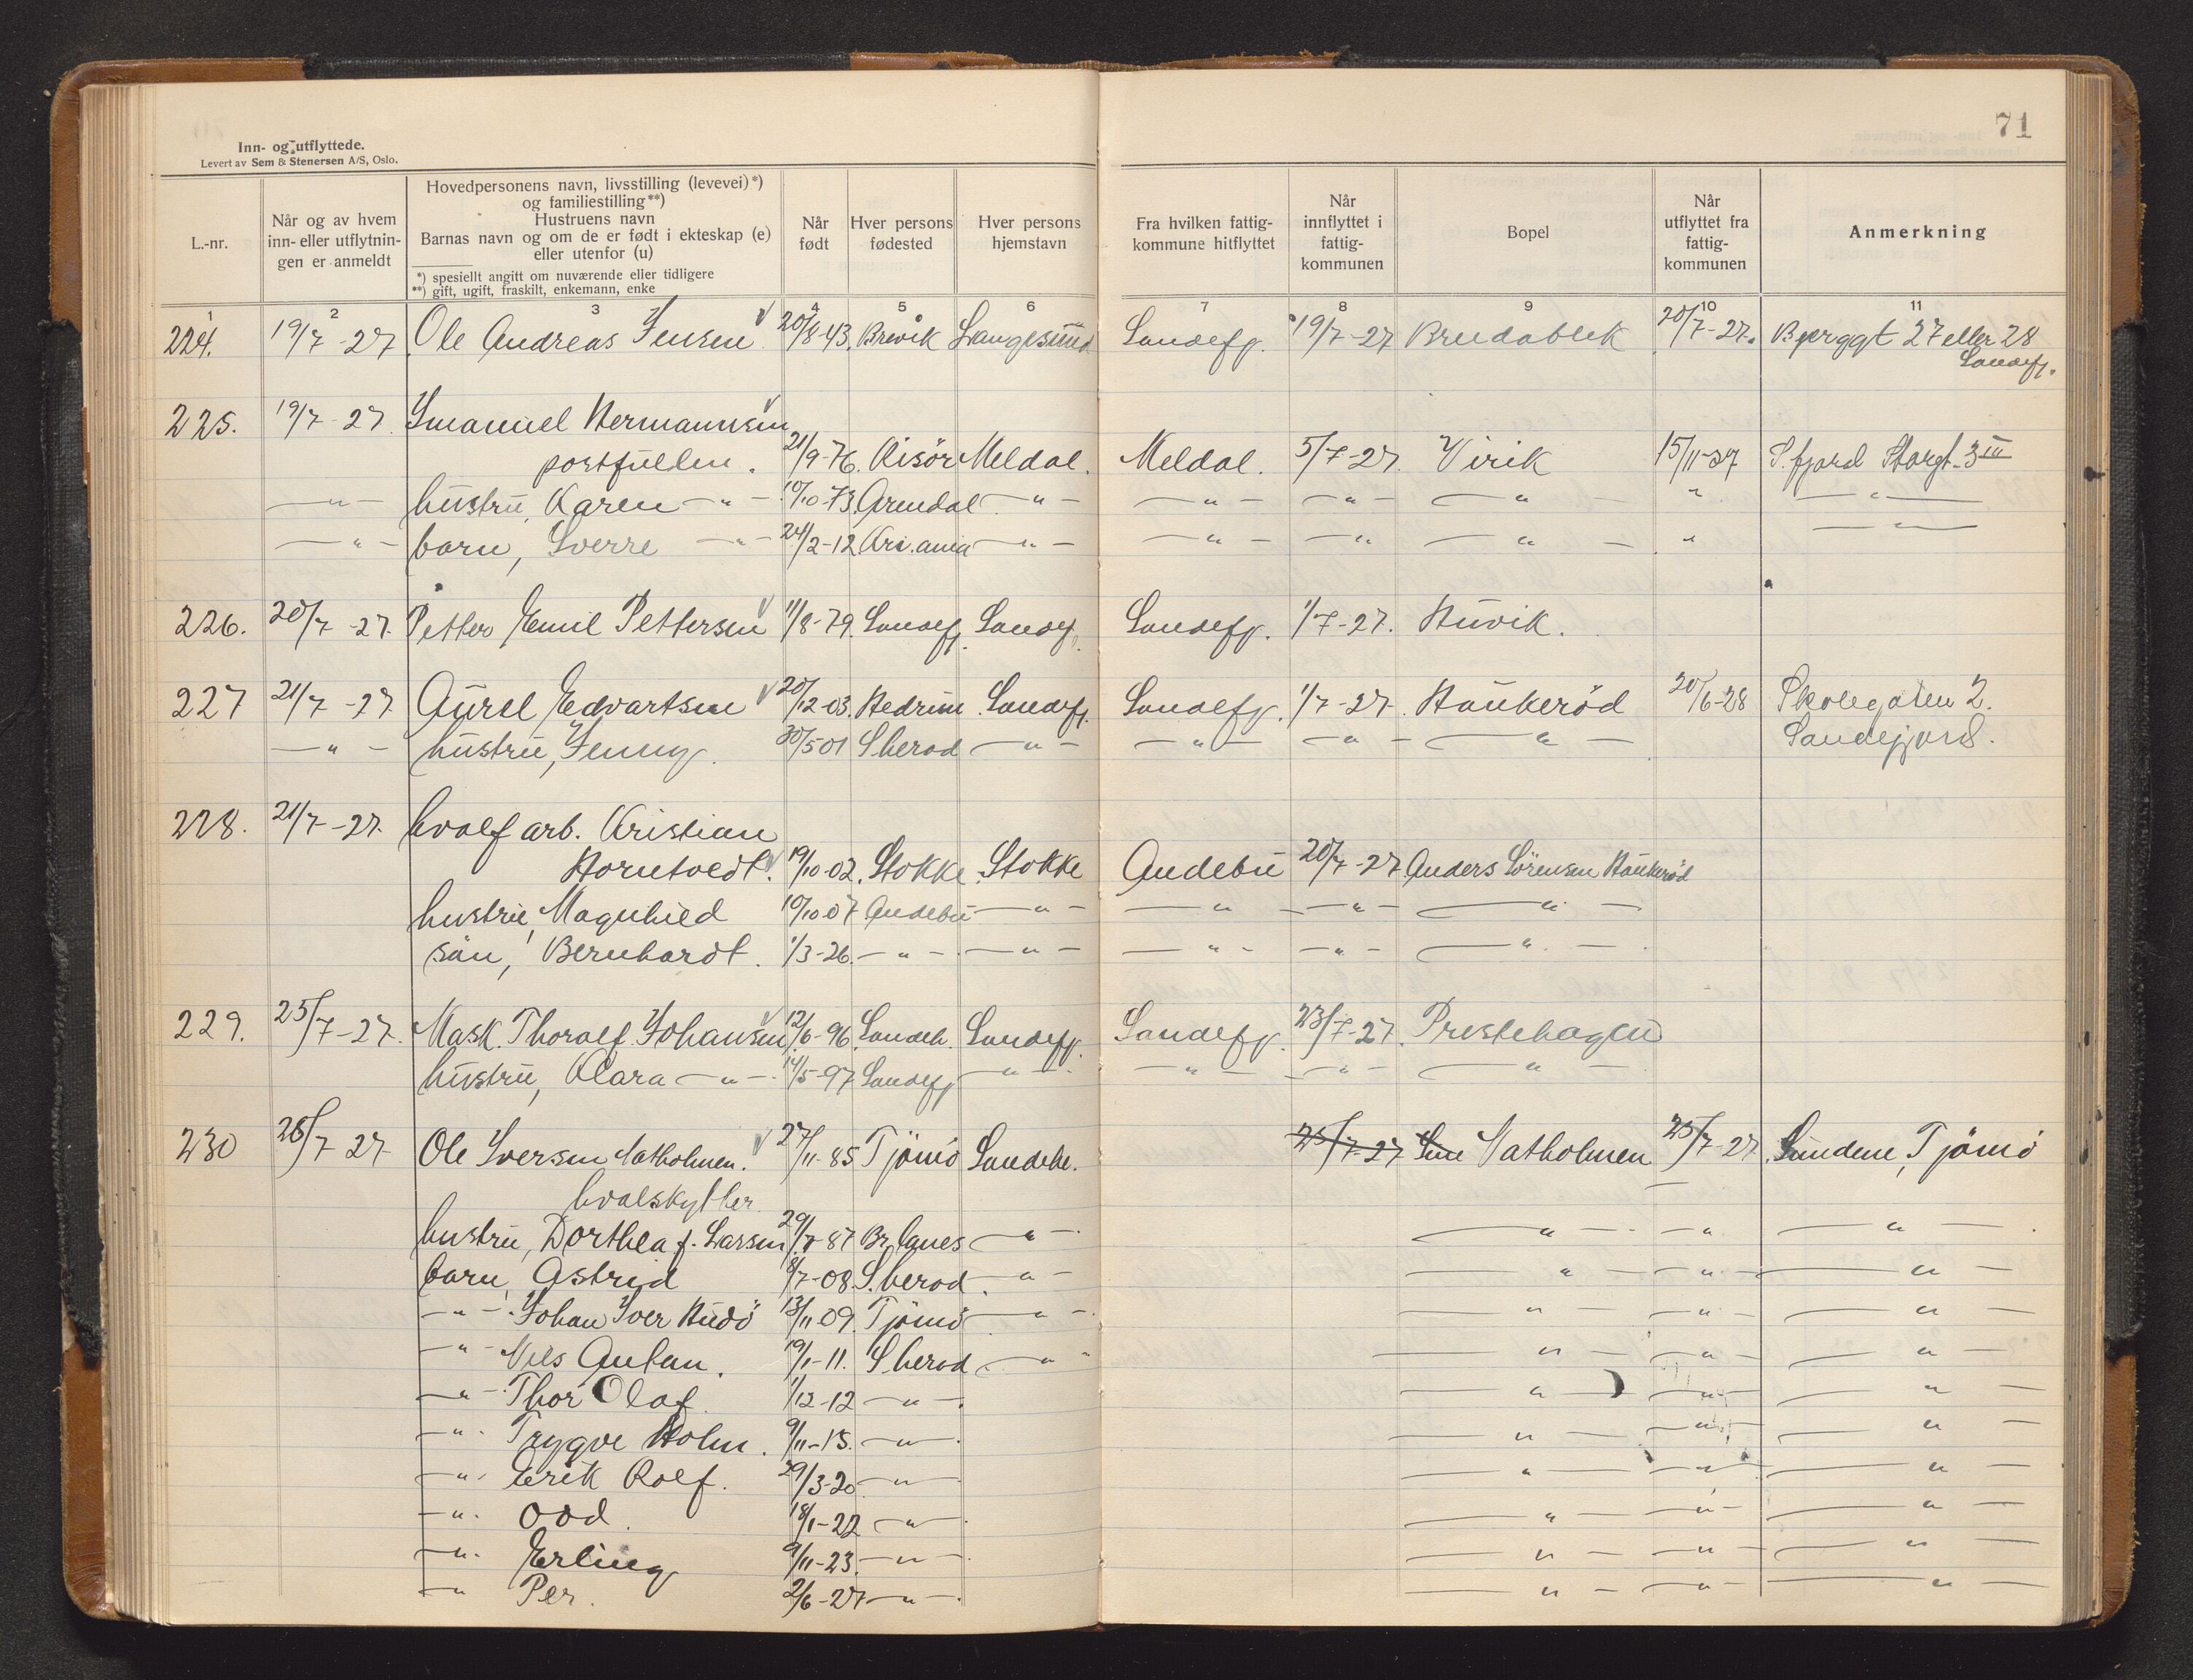 71
Inn- og utflyttede.
Levert av Sem & Stenersen A/S, Oslo.
L.-nr.
Når og av hvem
inn- eller utflytnin-
gen er anmeldt
Hovedpersonens navn, livsstilling (levevei)*)
og familiestilling**)
Hustruens navn
Barnas navn og om de er født i ekteskap (e)
eller utenfor (u)
*) spesiellt angitt om nuværende eller tidligere
**) gift, ugift, fraskilt, enkemann, enke
Når
født
Hver persons
fødested
Hver persons
hjemstavn
Fra hvilken fattig-
kommune hitflyttet
Når
innflyttet i
fattig-
kommunen
Bopel
Når
utflyttet fra
fattig-
kommunen
Anmerkning
1 2 3 4 5 6 7 8 9 10 11
224. 19/7-27 Ole Andreas Jensen 20/8-43. Brevik Langesund Sandefj. 19/7-27 Breidablik 20/7-27. Bjerggt 27 eller 28
Sandefj.
225. 19/7-27. Imanuel Hermannsen
portfüllen. 21/9-76. Risör Meldal. Meldal. 5/7-27. Virik 15/11-27 S.fjord Storgt. 3 III
-"- hustru, Karen -"- 10/10-73. Arendal -"- -"- -"- -"- " -"-
-"- barn, Sverre -"- 24/2-12 Kri.ania -"- -"- -"- -"- " -"-
226. 20/7-27. Petter Emil Pettersen 11/8-79. Sandefj. Sandefj. Sandefj. 1/7-27. Huvik.
227 21/7-27 Aurel Edvartsen 20/12-03. Hedrum Sandefj. Sandefj. 1/7-27. Haukeröd 20/6-28 Skolegaten 2.
-"- hustru, Jenny. 30/5 01 Sherad -"- -"- -"- -"- Sandefjord.
228. 21/7-27. hvalf arb. Kristian
Horntvedt. 19/10-02. Stokke Stokke Andebu 20/7-27 Anders Sörensen Haukeröd
hustru, Magnhild 10/10 07 Andebu -"- -"- -"- -"-
sön, Bernhardt. 1/3-26. -"- -"- -"- -"- -"-
229. 25/7-27. Mask. Thoralf Johansen 12/6-96 Sandeh. Sandefj. Sandefj. 23/7-27. Prestehagen
hustru, Clara -"- 14/5-97 Sandefj -"- -"- -"- -"-
230 26/7 27 Ole Iversen Natholmen. 27/11-85 Tjömö Sandehe. 25/7-27 Natholmen 25/7-27. Sundene, Tjömö
hvalskytter
hustru, Dorthea f. Larsen 29/7-87 Br.lanes -"- -"- -"- -"-
barn, Astrid 8/7-08 S.herad -"- -"- -"- -"-
-"- Johan Iver Hudö 13/11 09. Tjömö -"- -"- -"- -"-
-"- Nils Anton. 19/1-11. Sherad -"- -"- -"- -"-
-"- Thor Olaf. 1/12-12 -"- -"- -"- -"-
-"- Trygve Holm. 9/11-15. -"- -"- -"- -"-
-"- Erik Rolf. 29/3-20 -"- -"- -"- -"-
-"- Odd. 18/1-22 -"- -"- -"- -"-
-"- Erling 9/11-23. -"- -"- -"- -"-
-"- Per. 2/6-27 -"- -"- -"- -"-